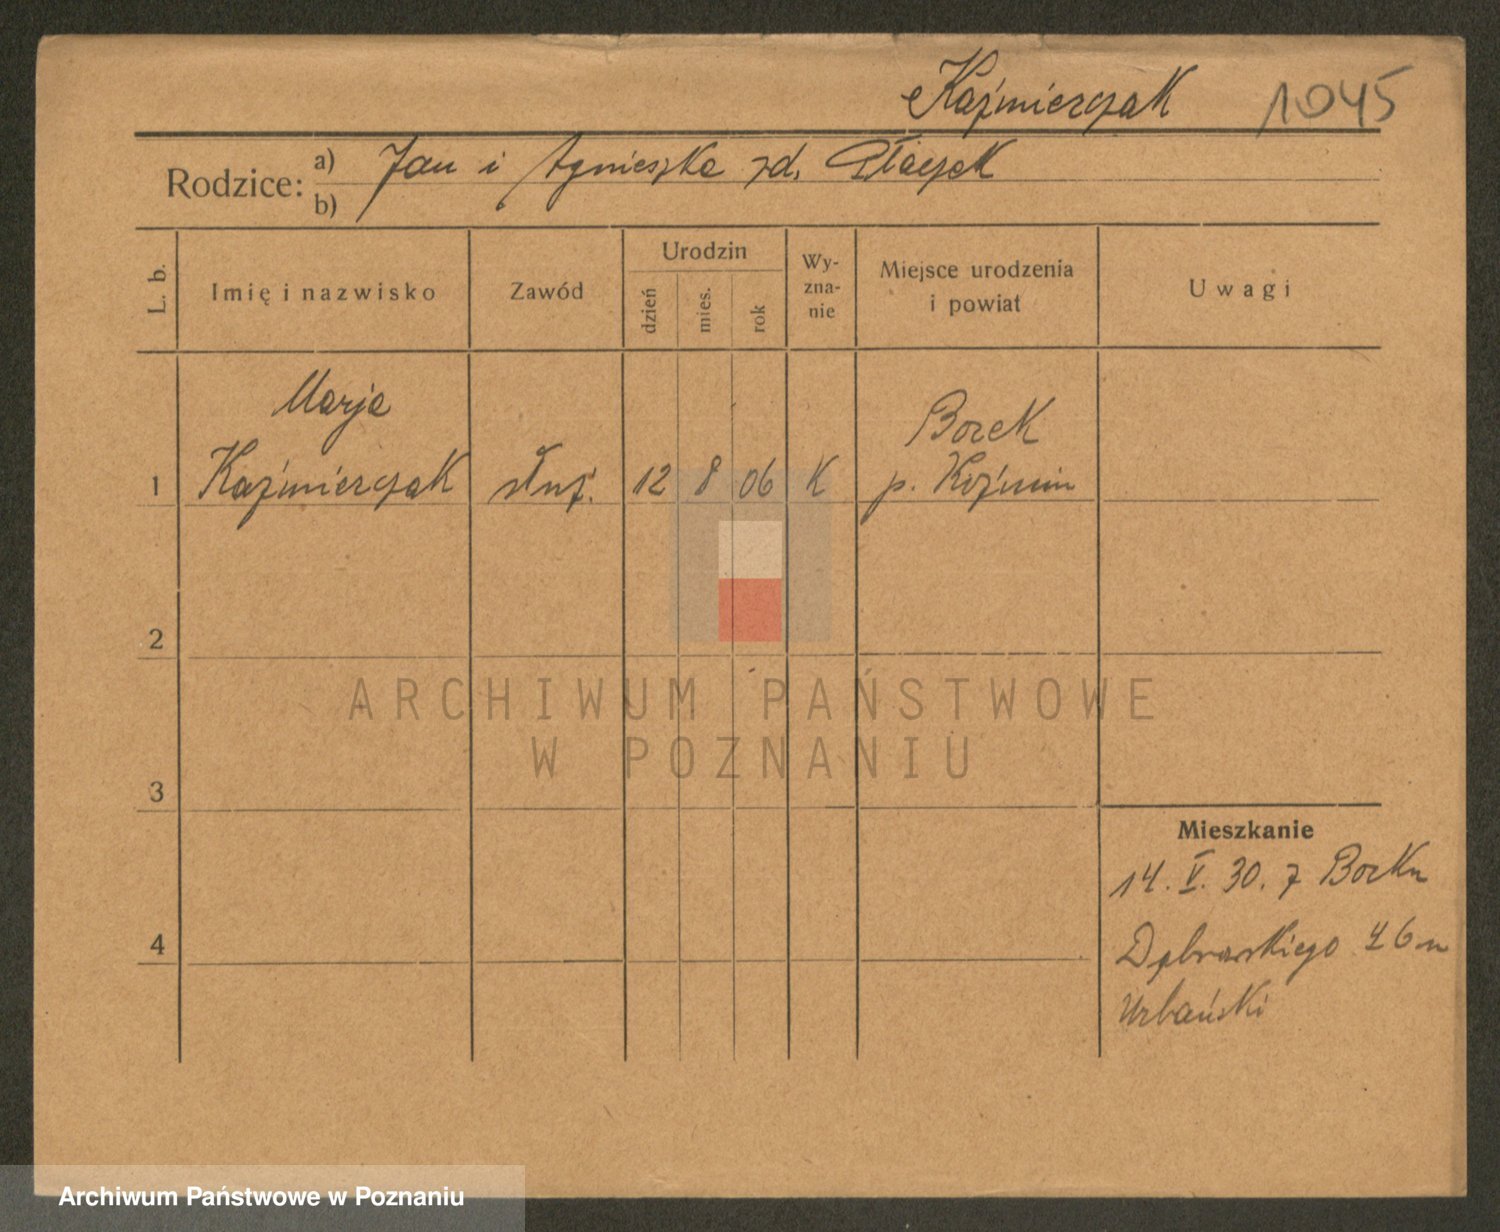 Kaźmierczak 1045
Rodzice: a) Jan i Agnieszka zd.
b)
L. b.
Imię i nazwisko
Zawód
Urodzin
dzień
mies.
rok
Wy-
zna-
nie
Miejsce urodzenia
i powiat
Uwagi
Marja
Borek
1 Kaźmierczak służ. 12 8 06 K p. Koźmin
2
ARCHIWUM PAŃSTWOWE
W POZNANIU
3
Mieszkanie
14. V. 30. z Borku
4 Dąbrowskiego
Urbański
Archiwum Państwowe w Poznaniu